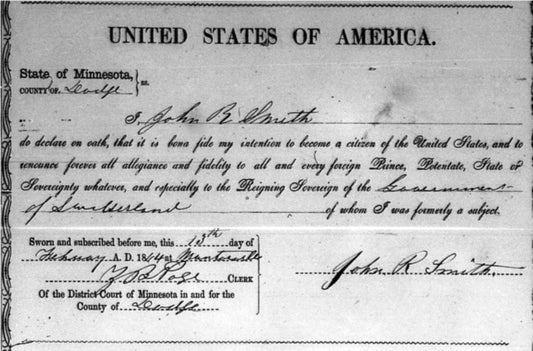 UNITED STATES OF AMERICA.
State of Minnesota,
COUNTY OF Dodge } ss.
I John R Smith
do declare on oath, that it is bona fide my intention to become a citizen of the United States, and to
renounce forever all allegiance and fidelity to all and every foreign Prince, Potentate, State or
Sovereignty whatever, and especially to the Reigning Sovereign of the Government
of Switzerland of whom I was formerly a subject.
Sworn and subscribed before me, this 13th day of
February A. D. 1864 at Mantorville
CLERK
John R Smith.
Of the District Court of Minnesota in and for the
County of Dodge